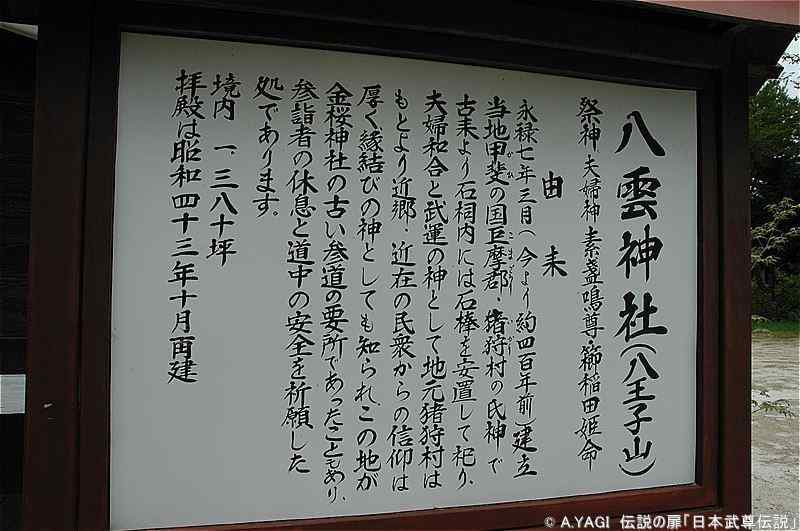 八雲神社（八王子山）
祭神 夫婦神 素盞嗚尊・稲田姫命
由来
永禄七年三月（今より約四百年前）建立
当地甲斐の国巨摩郡・猪狩村の氏神で
古来より石祠内には石棒を安置して祀り、
夫婦和合と武運の神として地元猪狩村は
もとより近郷、近在の民衆からの信仰は
厚く縁結びの神としても知られ、この地が
金桜神社の古い参道の要所であったこともあり、
参詣者の休息と道中の安全を祈願した
処であります。
境内 一、三八十坪
拝殿は昭和四十三年十月再建
© A.YAGI 伝説の扉「日本武尊伝説」